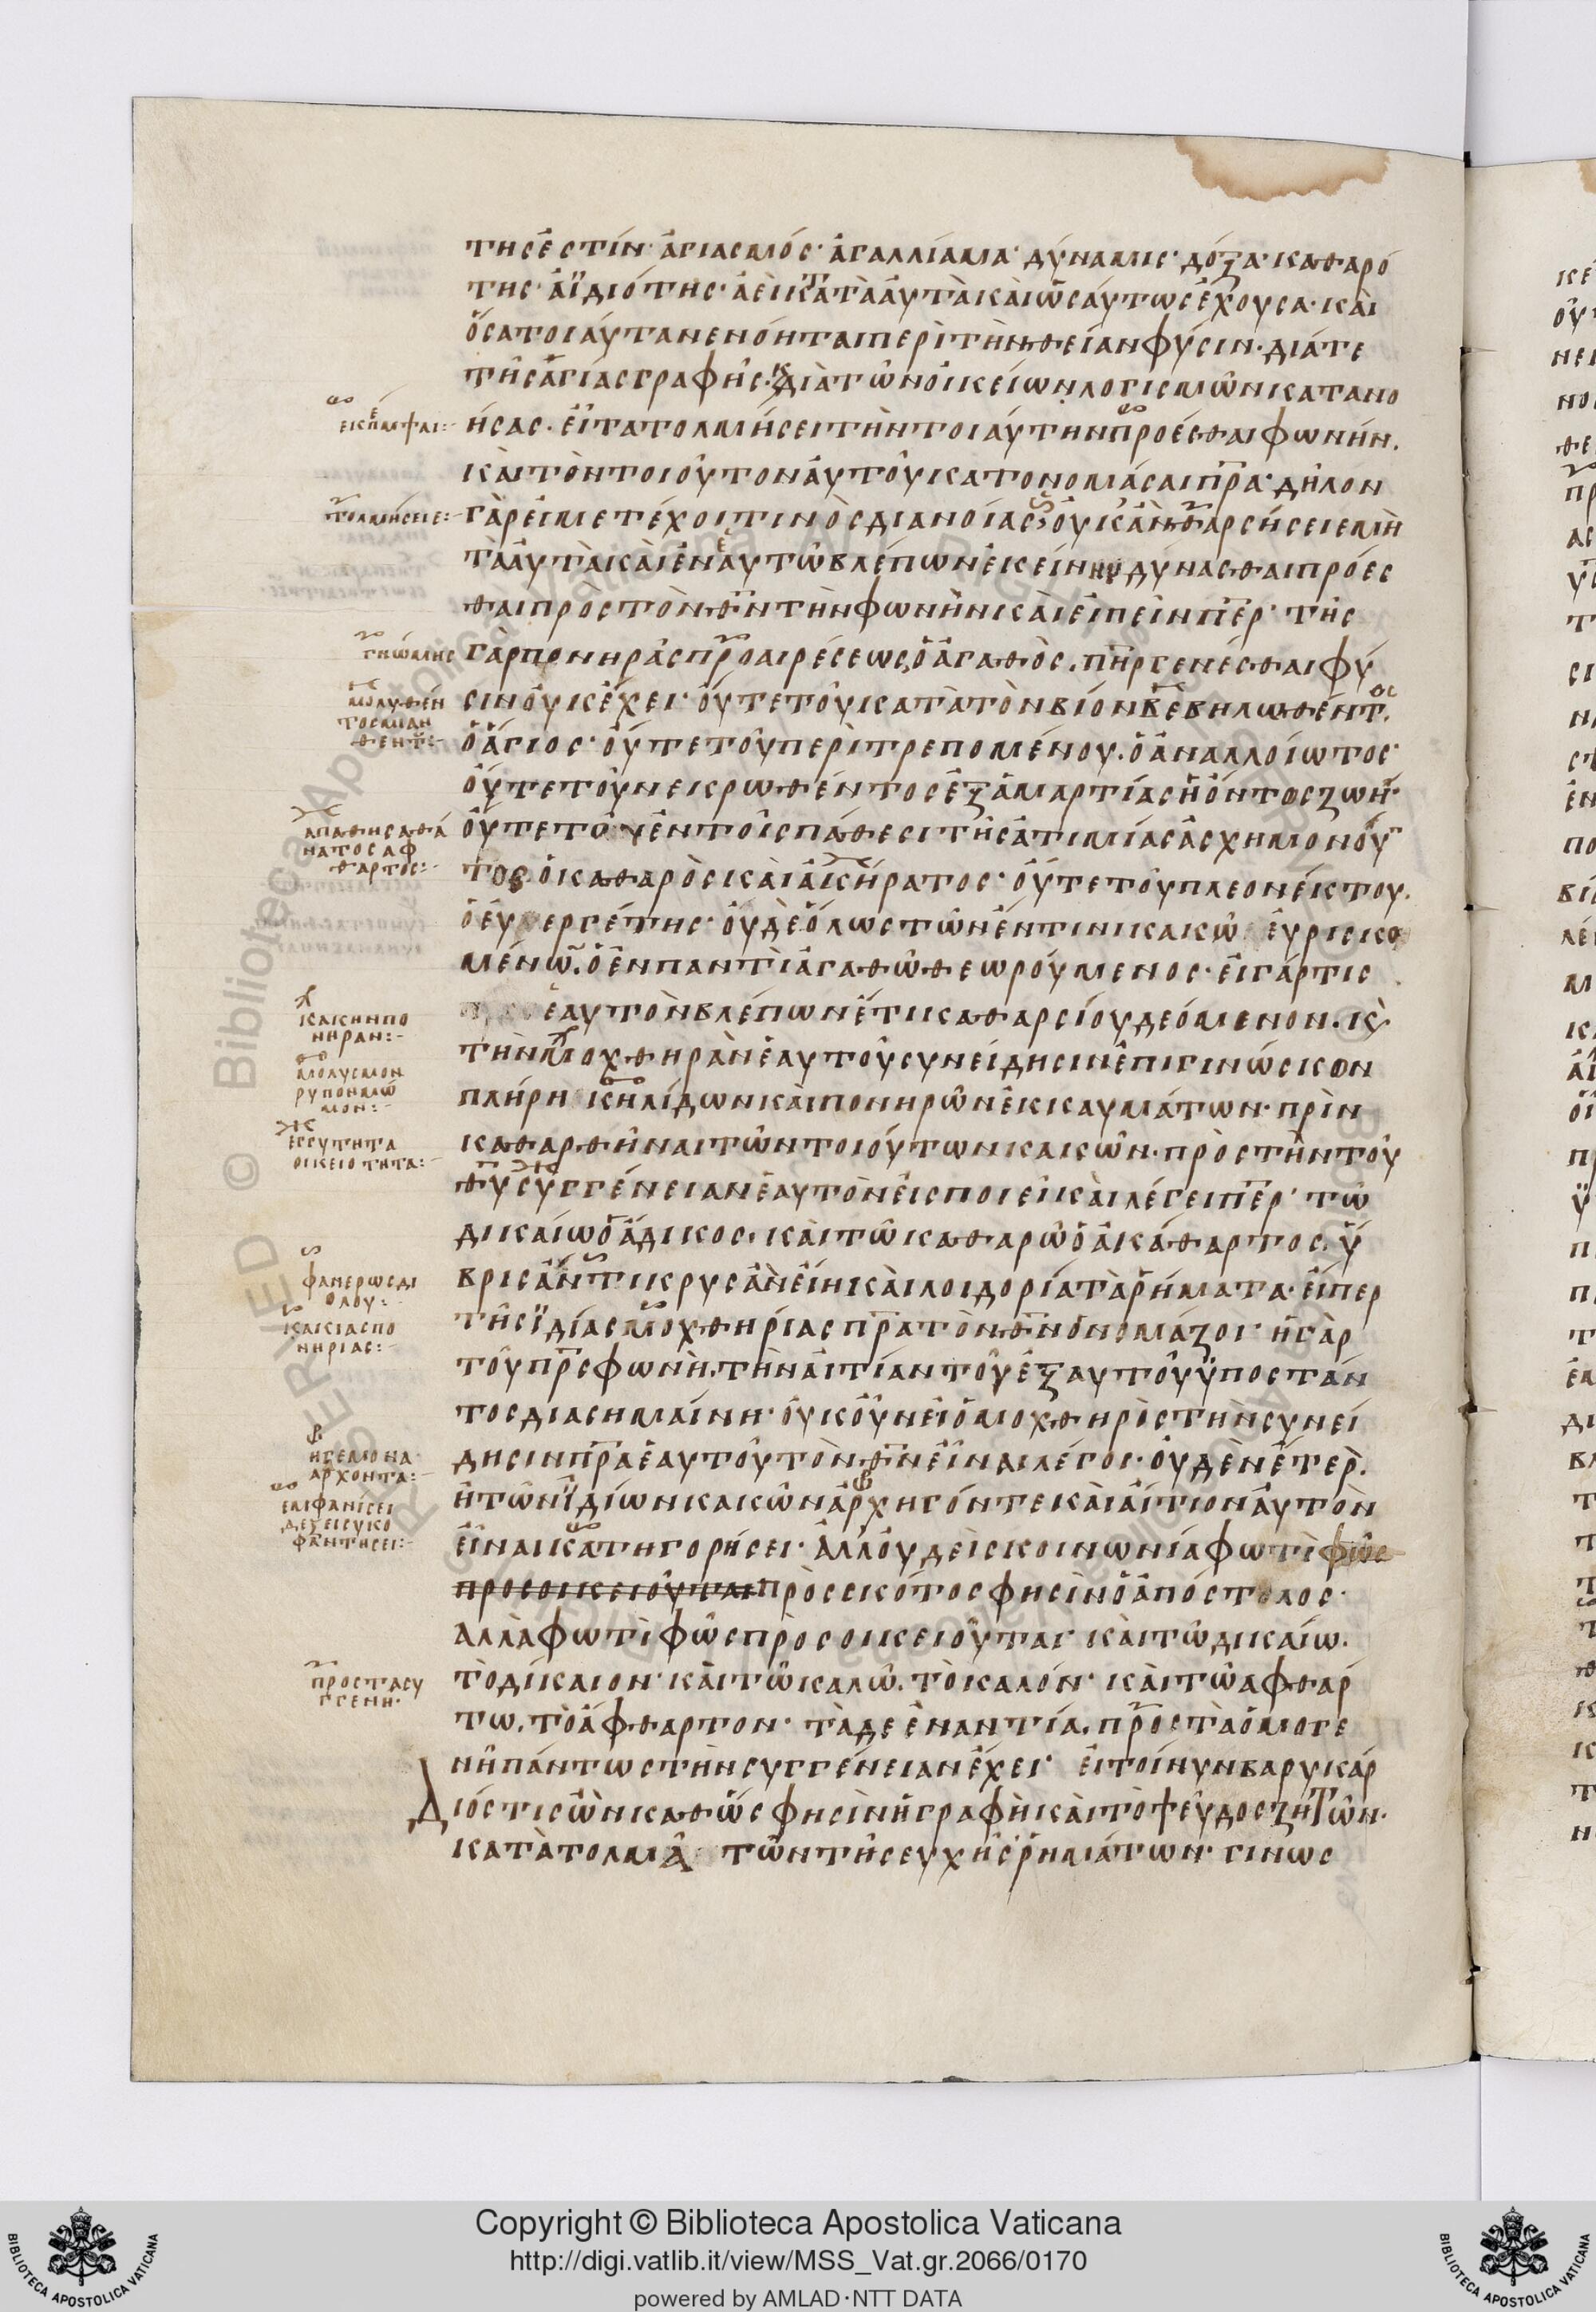 της ἐστίν· ἁγιασμός· ἀγαλλίαμα· δύναμις· δόξα· καθαρό
της· ἀϊδιότης· ἀεὶ κατὰ ἀυτὰ κὰι ὡσάυτως ἔχουσα· κὰι
ὅσα τοιάυτα νενόηται περὶ τὴν θείαν φύσιν· διά τε
τῆς ἁγίας γραφῆς· κ διὰ τῶν οἰκείων λογισμῶν κατανο
ήσας· εἶτα τολμήσει τὴν τοιάυτην προέσθαι φωνήν.
κὰι τὸν τοιοῦτον ἁυτοῦ κατονομάσαι πρα· δῆλον
γὰρ εἰ μετέχοι τινὸς διανοίας· ὀυκ ἂν θαρσήσειε μὴ
τὰ ἀυτὰ κὰι ἐν ἑαυτῶ βλέπων ἐκείνην δύνασθαι προές
θαι πρὸς τὸν θν τὴν φωνὴν κὰι ἐιπεῖν περ· τῆς
γὰρ πονηρᾶς προαιρέσεως, ὁ ἀγαθὸς. πηρ γενέσθαι φύ
σιν ὀυκ ἔχει· ὄυτε τοῦ κατὰ τὸν βίον βεβηλωθέντος.
ὁ ἅγιος· ὄυτε τοῦ περιτρεπομένου. ὁ ἀναλλοίωτος·
ὄυτε τοῦ νεκρωθέντος ἐξ ἁμαρτίας ἡ ὄντως ζωή·
ὄυτε τοῦ ἐν τοῖς πάθεσι τῆς ἀτιμίας ἀσχημονοῦν
τος. ὁ καθαρὸς κὰι ἀκήρατος· ὄυτε τοῦ πλεονέκτου.
ὁ ἐυεργέτης· ὀυδὲ ὅλως τῶν ἔν τινι κακῶ ἑυρισκο
μένων. ὁ ἐν παντὶ ἀγαθῶ θεωρούμενος· εἰ γάρ τις
ἑαυτὸν βλέπων ἔτι καθαρσίου δεόμενον. κ
τὴν μοχθηρὰν ἑαυτοῦ συνείδησιν ἐπιγινώσκων
πλήρη κηλίδων κὰι πονηρῶν ἐκκαυμάτων· πρὶν
καθαρθῆναι τῶν τοιούτων κακῶν· πρὸς τὴν τοῦ
θυ συγγένειαν ἑαυτὸν εἰσποιεῖ κὰι λέγει περ· τῶ
δικαίω ὁ ἄδικος, κὰι τῶ καθαρῶ ὁ ἀκάθαρτος, ὕ
βρις ἄντικρυς ἂν εἴη κὰι λοιδορία τὰ ῥήματα· εἴπερ
τῆς ἰδίας μοχθηρίας πρα τὸν θν ὀνομάζοι· ἡ γὰρ
τοῦ πρς φωνὴ. τὴν ἀιτίαν τοῦ ἐξ αυτοῦ ὑποστάν
τος διασημαίνη· ὀυκοῦν εἰ ὁ μοχθηρὸς τὴν συνεί
δησιν πρα ἑαυτοῦ τὸν θν εἶναι λέγοι· ὀυδὲν ἕτερ.
ἢ τῶν ἰδίων κακῶν ἀρχηγόν τε κὰι ἄιτιον ἀυτὸν
εἶναι κατηγορήσει· ἀλλ' ὀυδεὶς κοινωνία φωτὶ φῶς
προσοικειοῦται πρὸς σκότος φησὶν ὁ ἀπόστολος·
αλλὰ φωτὶ φῶς προσοικειοῦται· κὰι τῶ δικαίω.
τὸ δίκαιον· κὰι τῶ καλῶ. τὸ καλόν· κὰι τῶ αφθάρ
τω. τὸ ἄφθαρτον· τὰ δε ἐναντία. πρὸς τὰ ὁμογε
νῆ πάντως τὴν συγγένειαν ἔχει· εἰ τοίνυν βαρυκάρ
Διός τις ὢν καθώς φησὶν ἡ γραφὴ κὰι τὸ ψεῦδος ζητῶν·
κατὰ τολμᾶ τῶν τῆς ευχῆς ῥημάτων· γινωσ
εκπεμψαι:
τολμήσειε:
γνώμης
μολυνθέν
τος μιαν
θεντ:
απαθης αθά
νατος αφ
θαρτος:
κακην πο
νηραν:
μολυσμον
ρυπον μω
μον:
εγγυτητα
οικειοτητα:
φανερως δι
ολου:
κακιας πο
νηριας:
ηγεμονα
αρχοντα:
εμφανίσει
δείξει συκο
φαντησει:
προς τα συ
γγενη·
RESERVED © Biblioteca Apostolica Vaticana
Copyright © Biblioteca Apostolica Vaticana
http://digi.vatlib.it/view/MSS_Vat.gr.2066/0170
powered by AMLAD·NTT DATA
BIBLIOTECA APOSTOLICA VATICANA
BIBLIOTECA APOSTOLICA VATICANA